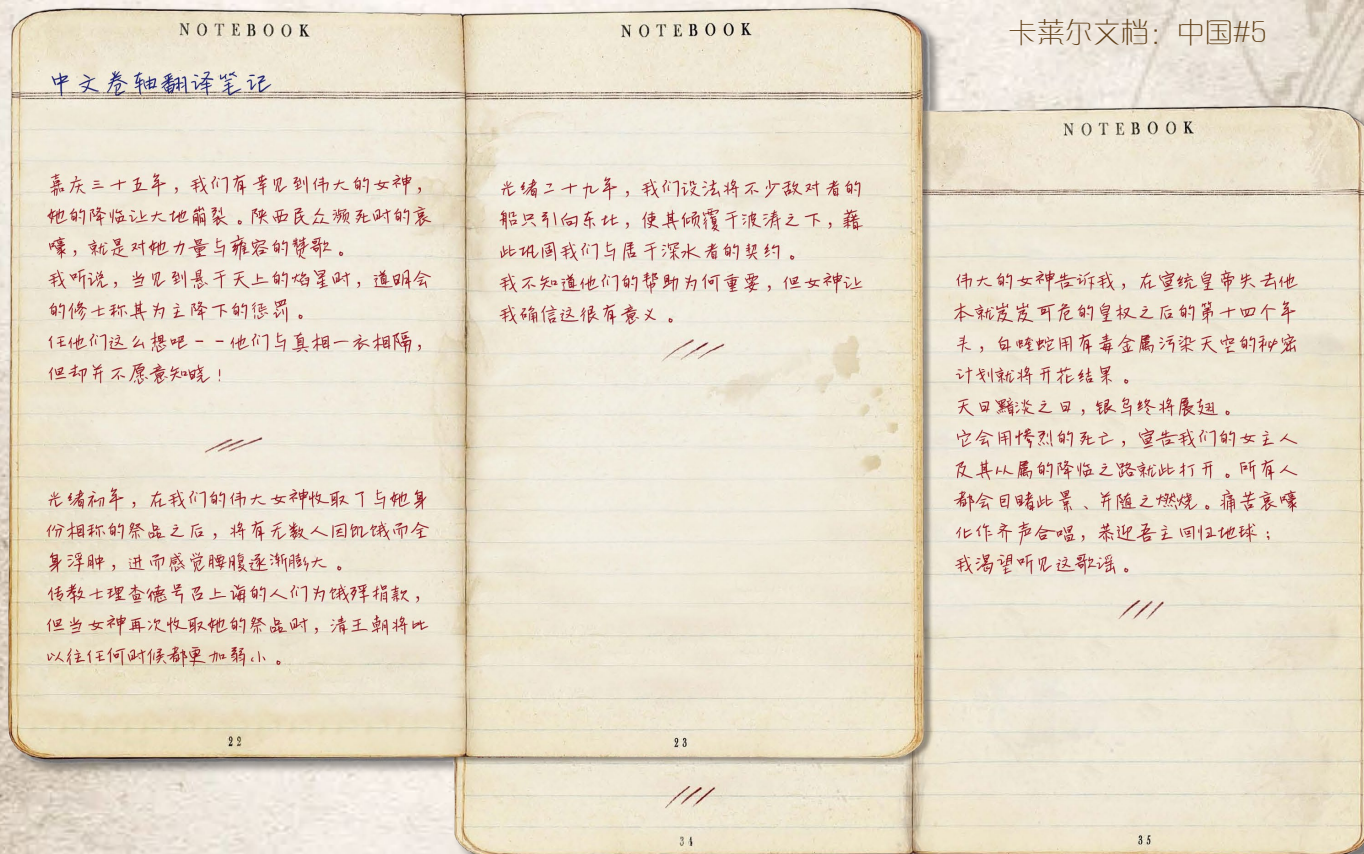 卡莱尔文档：中国#5
NOTEBOOK
中文卷轴翻译笔记
嘉庆三十五年，我们有幸见到伟大的女神，
她的降临让大地崩裂。陕西民众濒死时的哀
嚎，就是对她力量与雍容的赞歌。
我听说，当见到悬于天上的焰星时，道明会
的修士称其为主降下的惩罚。
任他们这么想吧--他们与真相一衣相隔，
但却并不愿意知晓！
光绪初年，在我们的伟大女神收取了与她身
份相称的祭品之后，将有无数人因饥饿而全
身浮肿，进而感觉腰腹逐渐膨大。
传教士理查德号召上海的人们为饿殍捐款，
但当女神再次收取她的祭品时，清王朝将比
以往任何时候都更加弱小。
22
NOTEBOOK
光绪二十九年，我们设法将不少敌对者的
船只引向东北，使其倾覆于波涛之下，藉
此巩固我们与居于深水者的契约。
我不知道他们的帮助为何重要，但女神让
我确信这很有意义。
23
34
NOTEBOOK
伟大的女神告诉我，在宣统皇帝失去他
本就岌岌可危的皇权之后的第十四个年
头，白蝰蛇用有毒金属污染天空的秘密
计划就将开花结果。
天日黯淡之日，银鸟终将展翅。
它会用惨烈的死亡，宣告我们的女主人
及其从属的降临之路就此打开。所有人
都会目睹此景、并随之燃烧。痛苦哀嚎
化作齐声合唱，恭迎吾主回归地球；
我渴望听见这歌谣。
35